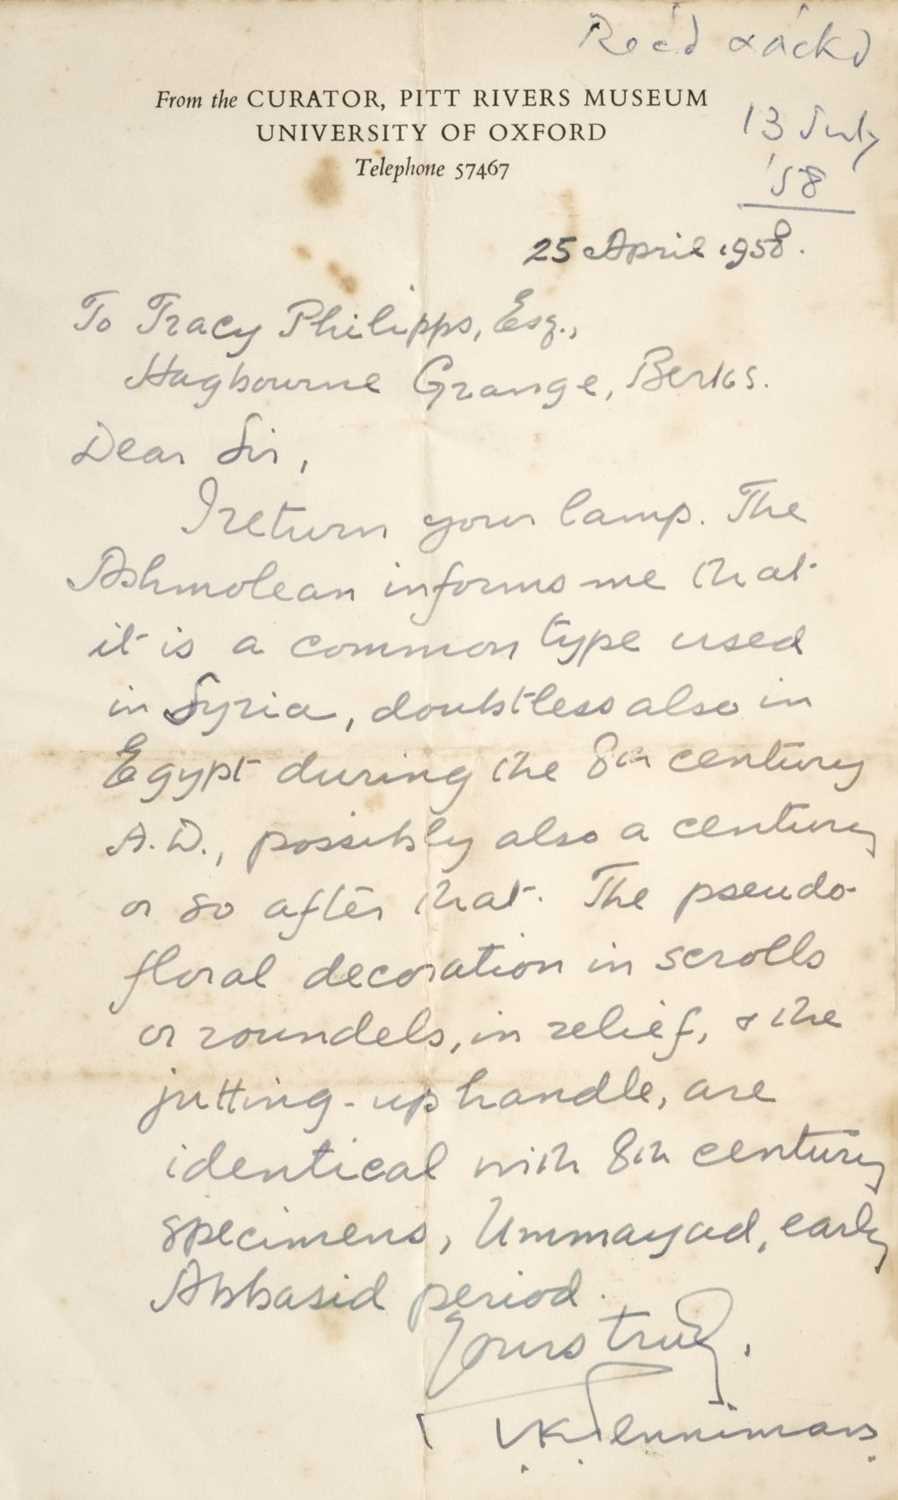 Rec'd & ack'd
13 July
'58
From the CURATOR, PITT RIVERS MUSEUM
UNIVERSITY OF OXFORD
Telephone 57467
25 April 1958.
To Tracy Philipps, Esq.,
Hagbourne Grange, Berks.
Dear Sir,
I return your lamp. The
Ashmolean informs me that
it is a common type used
in Syria, doubtless also in
Egypt during the 8th century
A.D., possibly also a century
or so after that. The pseudo-
floral decoration in scrolls
or roundels, in relief, & the
jutting-up handle, are
identical with 8th century
specimens, Ummayad, early
Abbasid period.
Yours truly.
Penniman